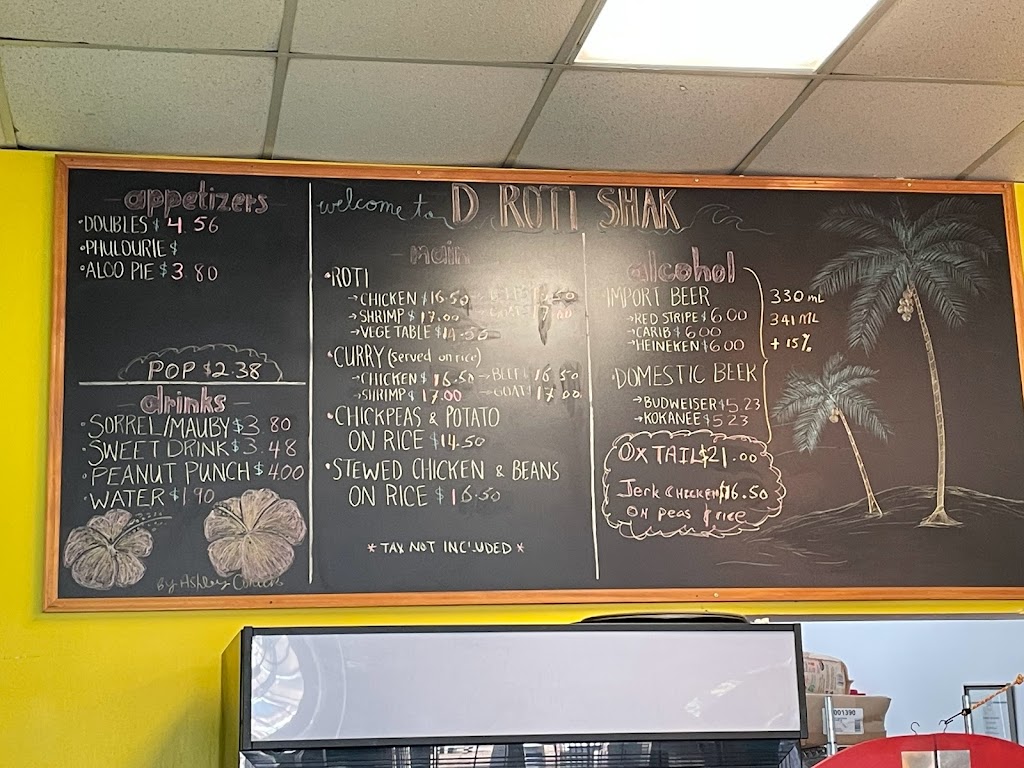 appetizers
•DOUBLES $ 4.56
•PHULOURIE $
•ALOO PIE $3.80
POP $2.38
drinks
•SORREL/MAUBY $3.80
•SWEET DRINK $3.48
•PEANUT PUNCH $4.00
•WATER $1.90
By Ashley
welcome to D ROTI SHAK
main
•ROTI
→CHICKEN $16.50
→SHRIMP $ 17.00
→VEGETABLE
•CURRY (served on rice)
→CHICKEN $ 16.50 →BEEF $ 16.50
→SHRIMP $ 17.00 →GOAT $ 17.00
•CHICKPEAS & POTATO
ON RICE $14.50
•STEWED CHICKEN & BEANS
ON RICE $16.50
*TAX NOT INCLUDED*
alcohol
IMPORT BEER 330 mL
→RED STRIPE $6.00 341 ML
→CARIB $6.00
→HEINEKEN $6.00 + 15%
•DOMESTIC BEER
→BUDWEISER $5.23
→KOKANEE $5.23
OX TAIL $21.00
Jerk CHICKEN $16.50
ON Peas & rice